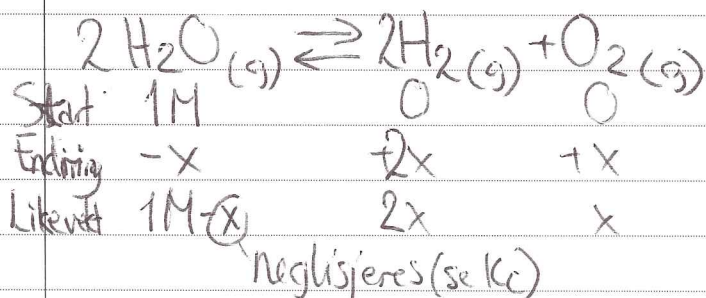 2 H₂O(g) ⇌ 2H₂(g) + O₂(g)
Start 1M 0 0
Endring -x +2x +x
Likevekt 1M-x 2x x
neglisjeres (se Kc)